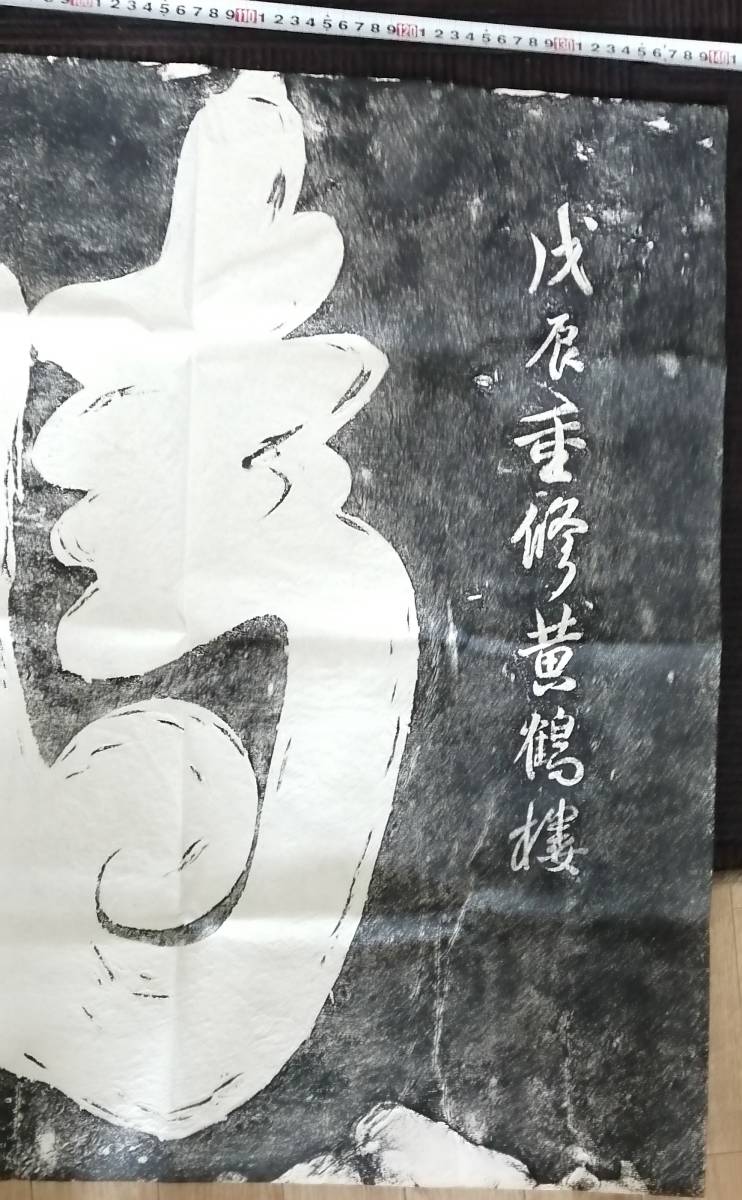 9 100 1 2 3 4 5 6 7 8 9 110 1 2 3 4 5 6 7 8 9 120 1 2 3 4 5 6 7 8 9 130 1 2 3 4 5 6 7 8 9 140 1
戊辰重修黄鶴樓